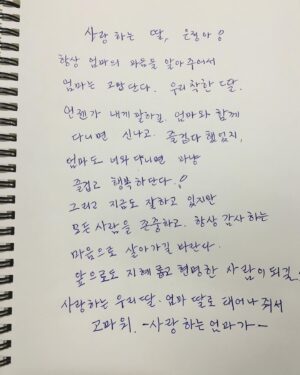 사랑하는 딸, 은정아!
항상 엄마의 마음을 알아주어서
엄마는 고맙단다. 우리 착한 딸.
언젠가 내게 말하길. 엄마와 함께
다니면 신나고. 즐겁다 했었지,
엄마도 너와 다니면 마냥
즐겁고 행복하단다!
그리고 지금도 잘하고 있지만
모든 사람을 존중하고. 항상 감사하는
마음으로 살아가길 바란다.
앞으로도 지혜롭고 현명한 사람이 되길.
사랑하는 우리 딸. 엄마 딸로 태어나 줘서
고마워. -사랑하는 엄마가-